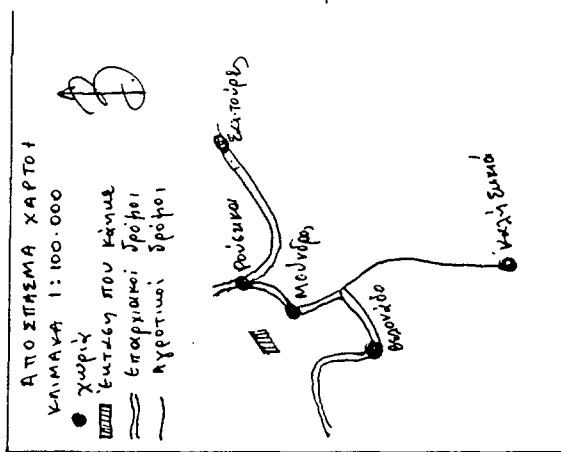 ΑΠΟΣΠΑΣΜΑ ΧΑΡΤΟΥ
ΚΛΙΜΑΚΑ 1:100.000
χωριά
Έκταση που κάηκε
Επαρχιακοί δρόμοι
Αγροτικοί δρόμοι
Β
Σαιτούρες
Ρούστικα
Μούνδρος
Βελονάδο
Καλή Συκιά